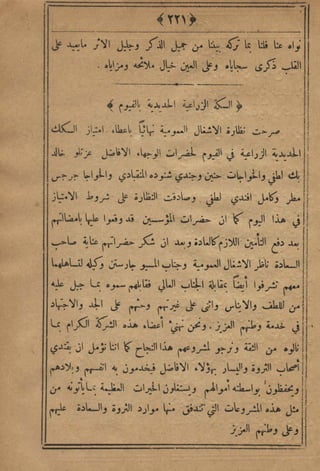 ﴿ ٢٢١ ﴾
نواه عنا فلنا بما تركه بيننا من جميل الذكر وجليل الاثر ما يعيد على
القلب ذكرى سجاياه وعلى العين خيال ملامحه ومزاياه .
﴿ السكة الزراعية الحديدية بالفيوم ﴾
صرحت نظارة الاشغال العمومية نهائيًا باعطاء امتياز السكك
الحديدية الزراعية في الفيوم لحضرات الوجهاء الافاضل عزتلو خالد
بك لطفي والخواجات حنين وجندي شنوده المنقبادي والخواجا جرجس
مطر وكامل افندي لطفي وصادقت النظارة على شروط الامتياز
في هذا اليوم كما ان حضرات المؤسسين قد وقعوا عليها بامضائهم
بعد دفع التأمين اللازم كالعادة وبعد ان شكر حضراتهم عناية صاحب
السعادة ناظر الاشغال العمومية وجناب المسيو جارستن وكيله لتساهلهما
معهم تشرفوا أيضًا بمقابلة الجناب العالي فقابلهم سموه بما جبل عليه
من اللطف والايناس واثنى على غيرتهم وحثهم على الجد والاجتهاد
في خدمة وطنهم العزيز . ونحن نهنئ أعضاء هذه الشركة الكرام بما
نالوه من الثقة ونرجو لمشروعهم هذا النجاح كما اننا نؤمل ان يقتدي
أصحاب الثروة واليسار بهؤلاء الافاضل فيخدمون به انفسهم وبلادهم
ويحفظون بواسطته أموالهم ويستغلون الخيرات العظيمة بما يأتونه من
مثل هذه المشروعات التي تتدفق منها موارد الثروة والسعادة عليهم
وعلى وطنهم العزيز